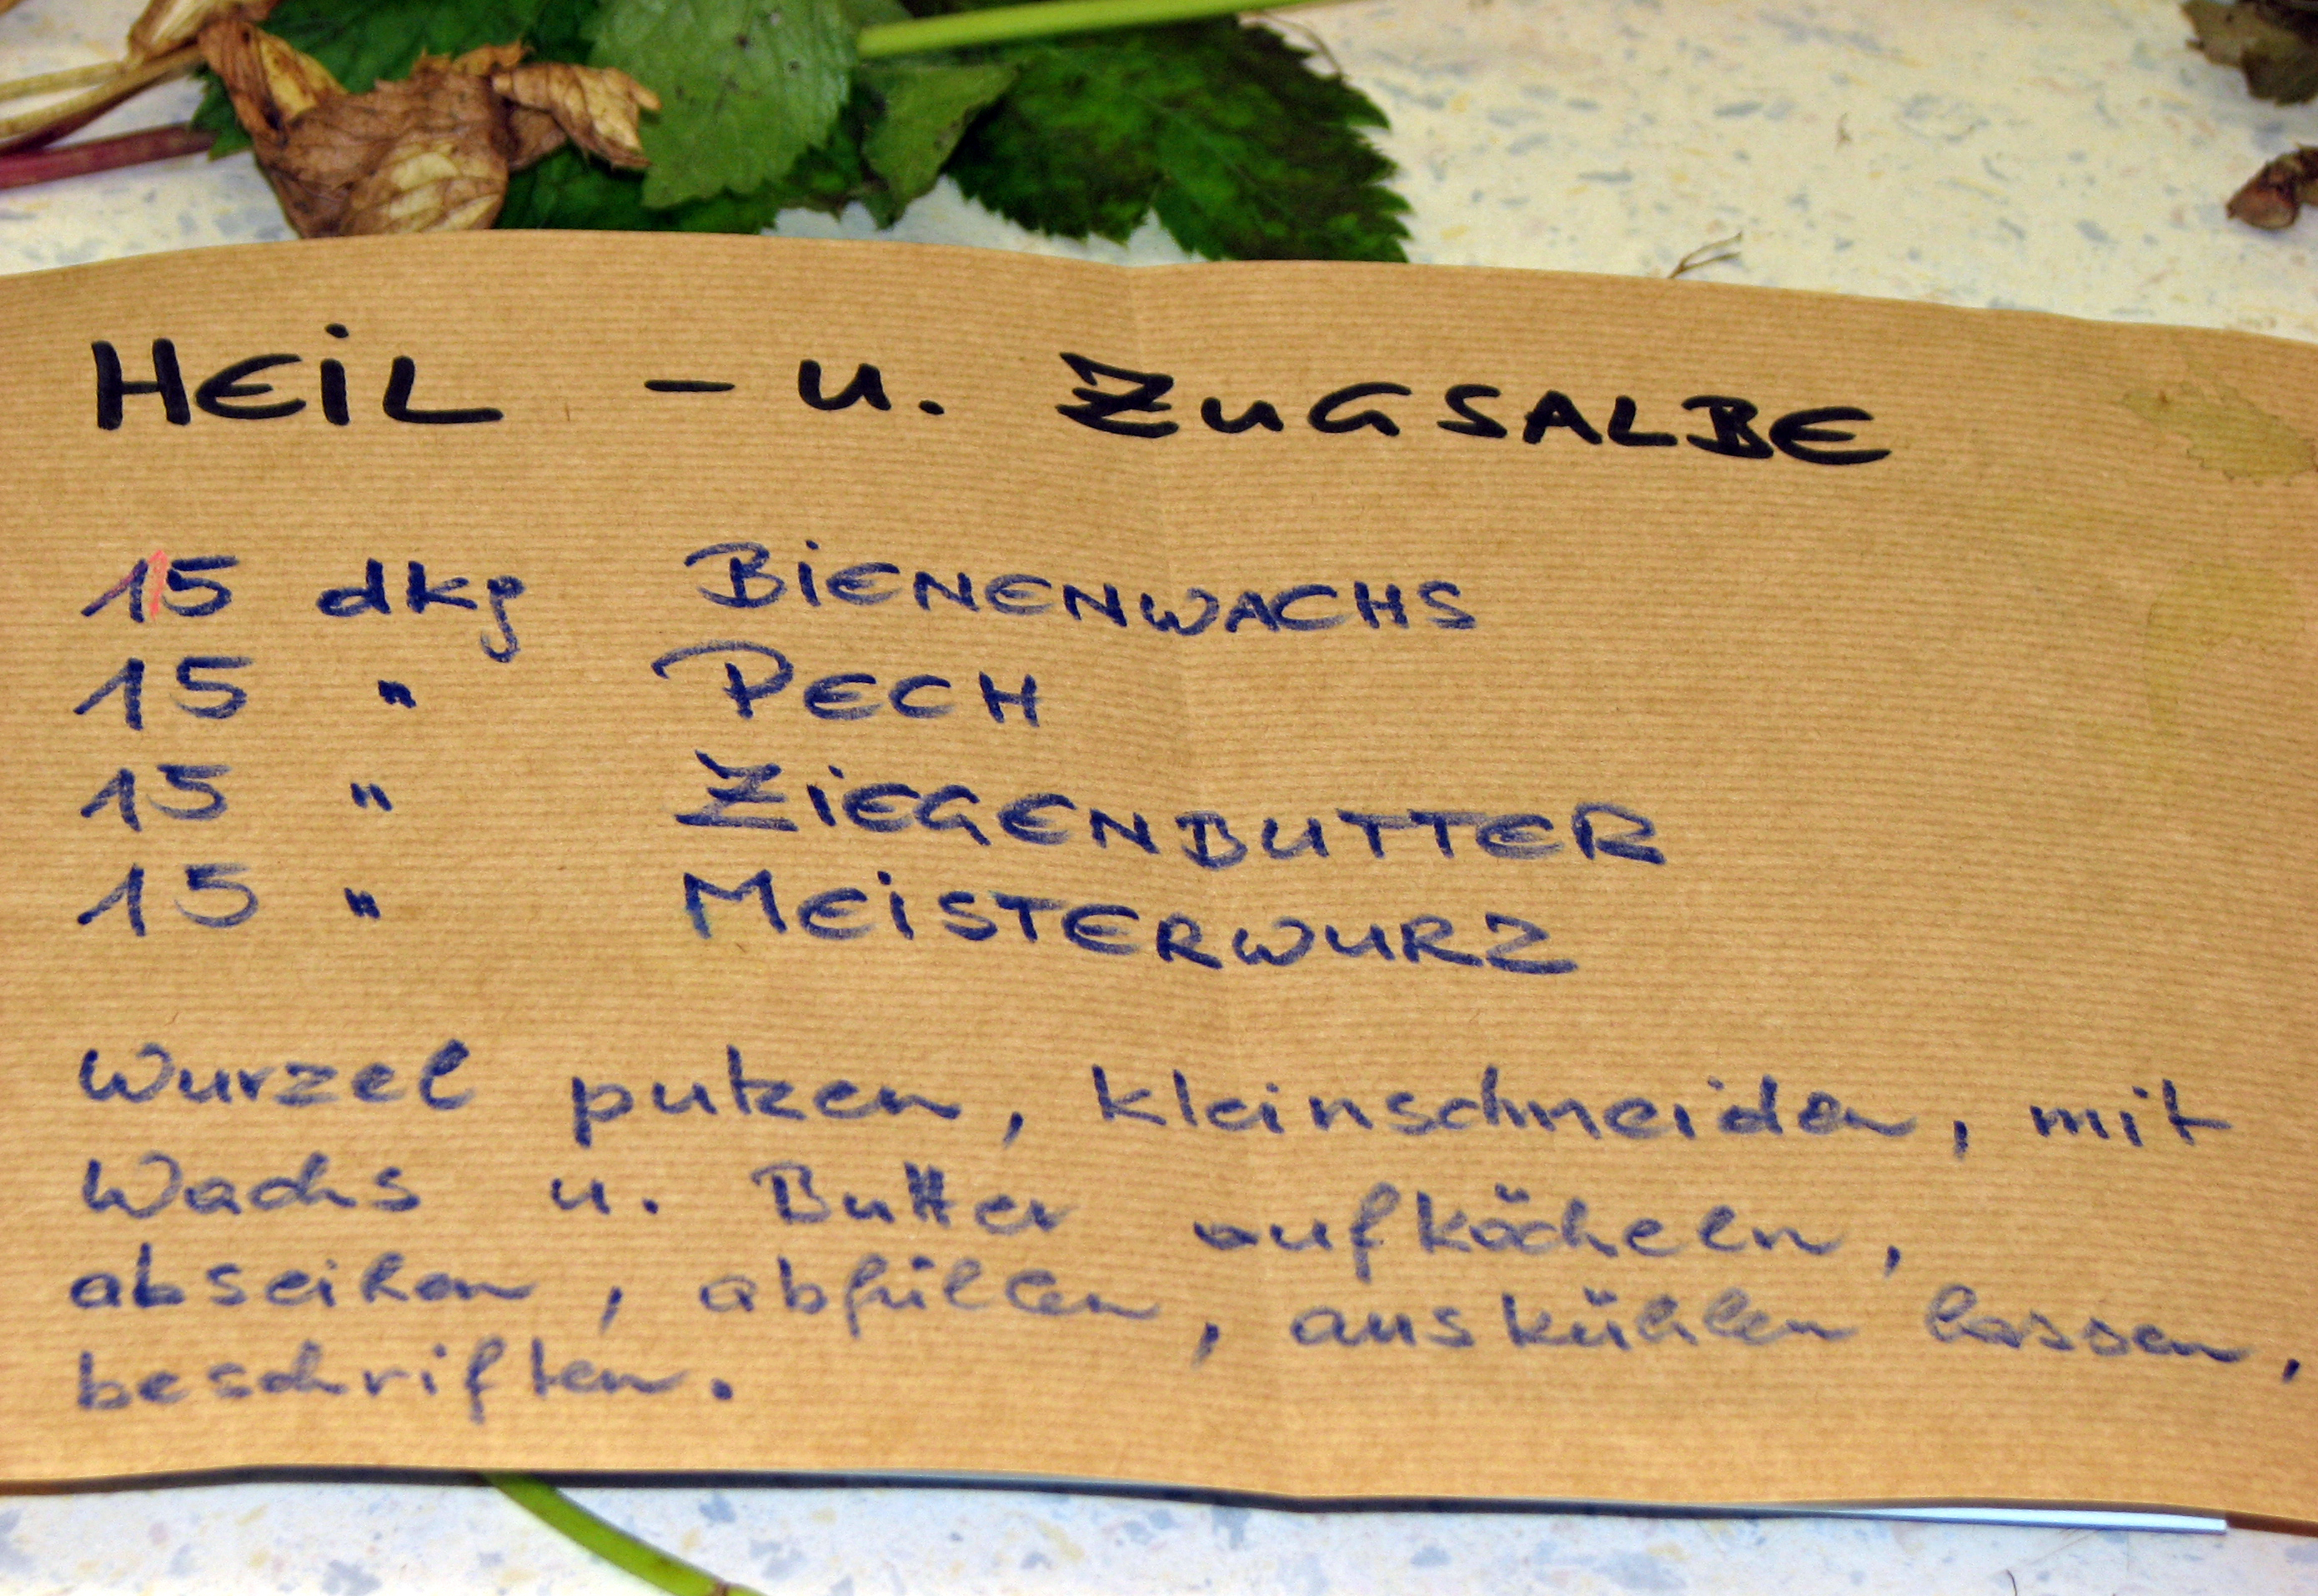 HEIL - U. ZUGSALBE
15 dkg BIENENWACHS
15 " PECH
15 " ZIEGENBUTTER
15 " MEISTERWURZ
Wurzel putzen, kleinschneiden, mit
Wachs u. Butter aufköcheln,
abseihen, abfüllen, auskühlen lassen,
beschriften.